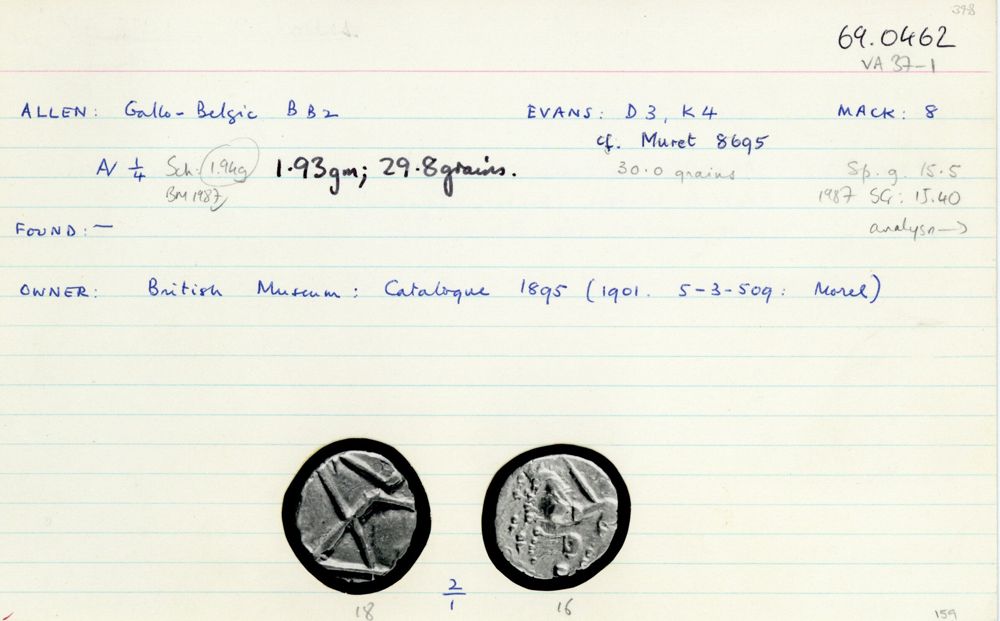 398
69.0462
VA 37-1
ALLEN: Gallo-Belgic B B2 EVANS: D3, K4 MACK: 8
cf. Muret 8695
AV 1/4 Sch. 1.94g 1.93gm; 29.8grains. 30.0 grains Sp. g. 15.5
BM 1987 1987 SG: 15.40
FOUND: — analysn →
OWNER: British Museum: Catalogue 1895 (1901. 5-3-509: Morel)
2/1
18 16
159